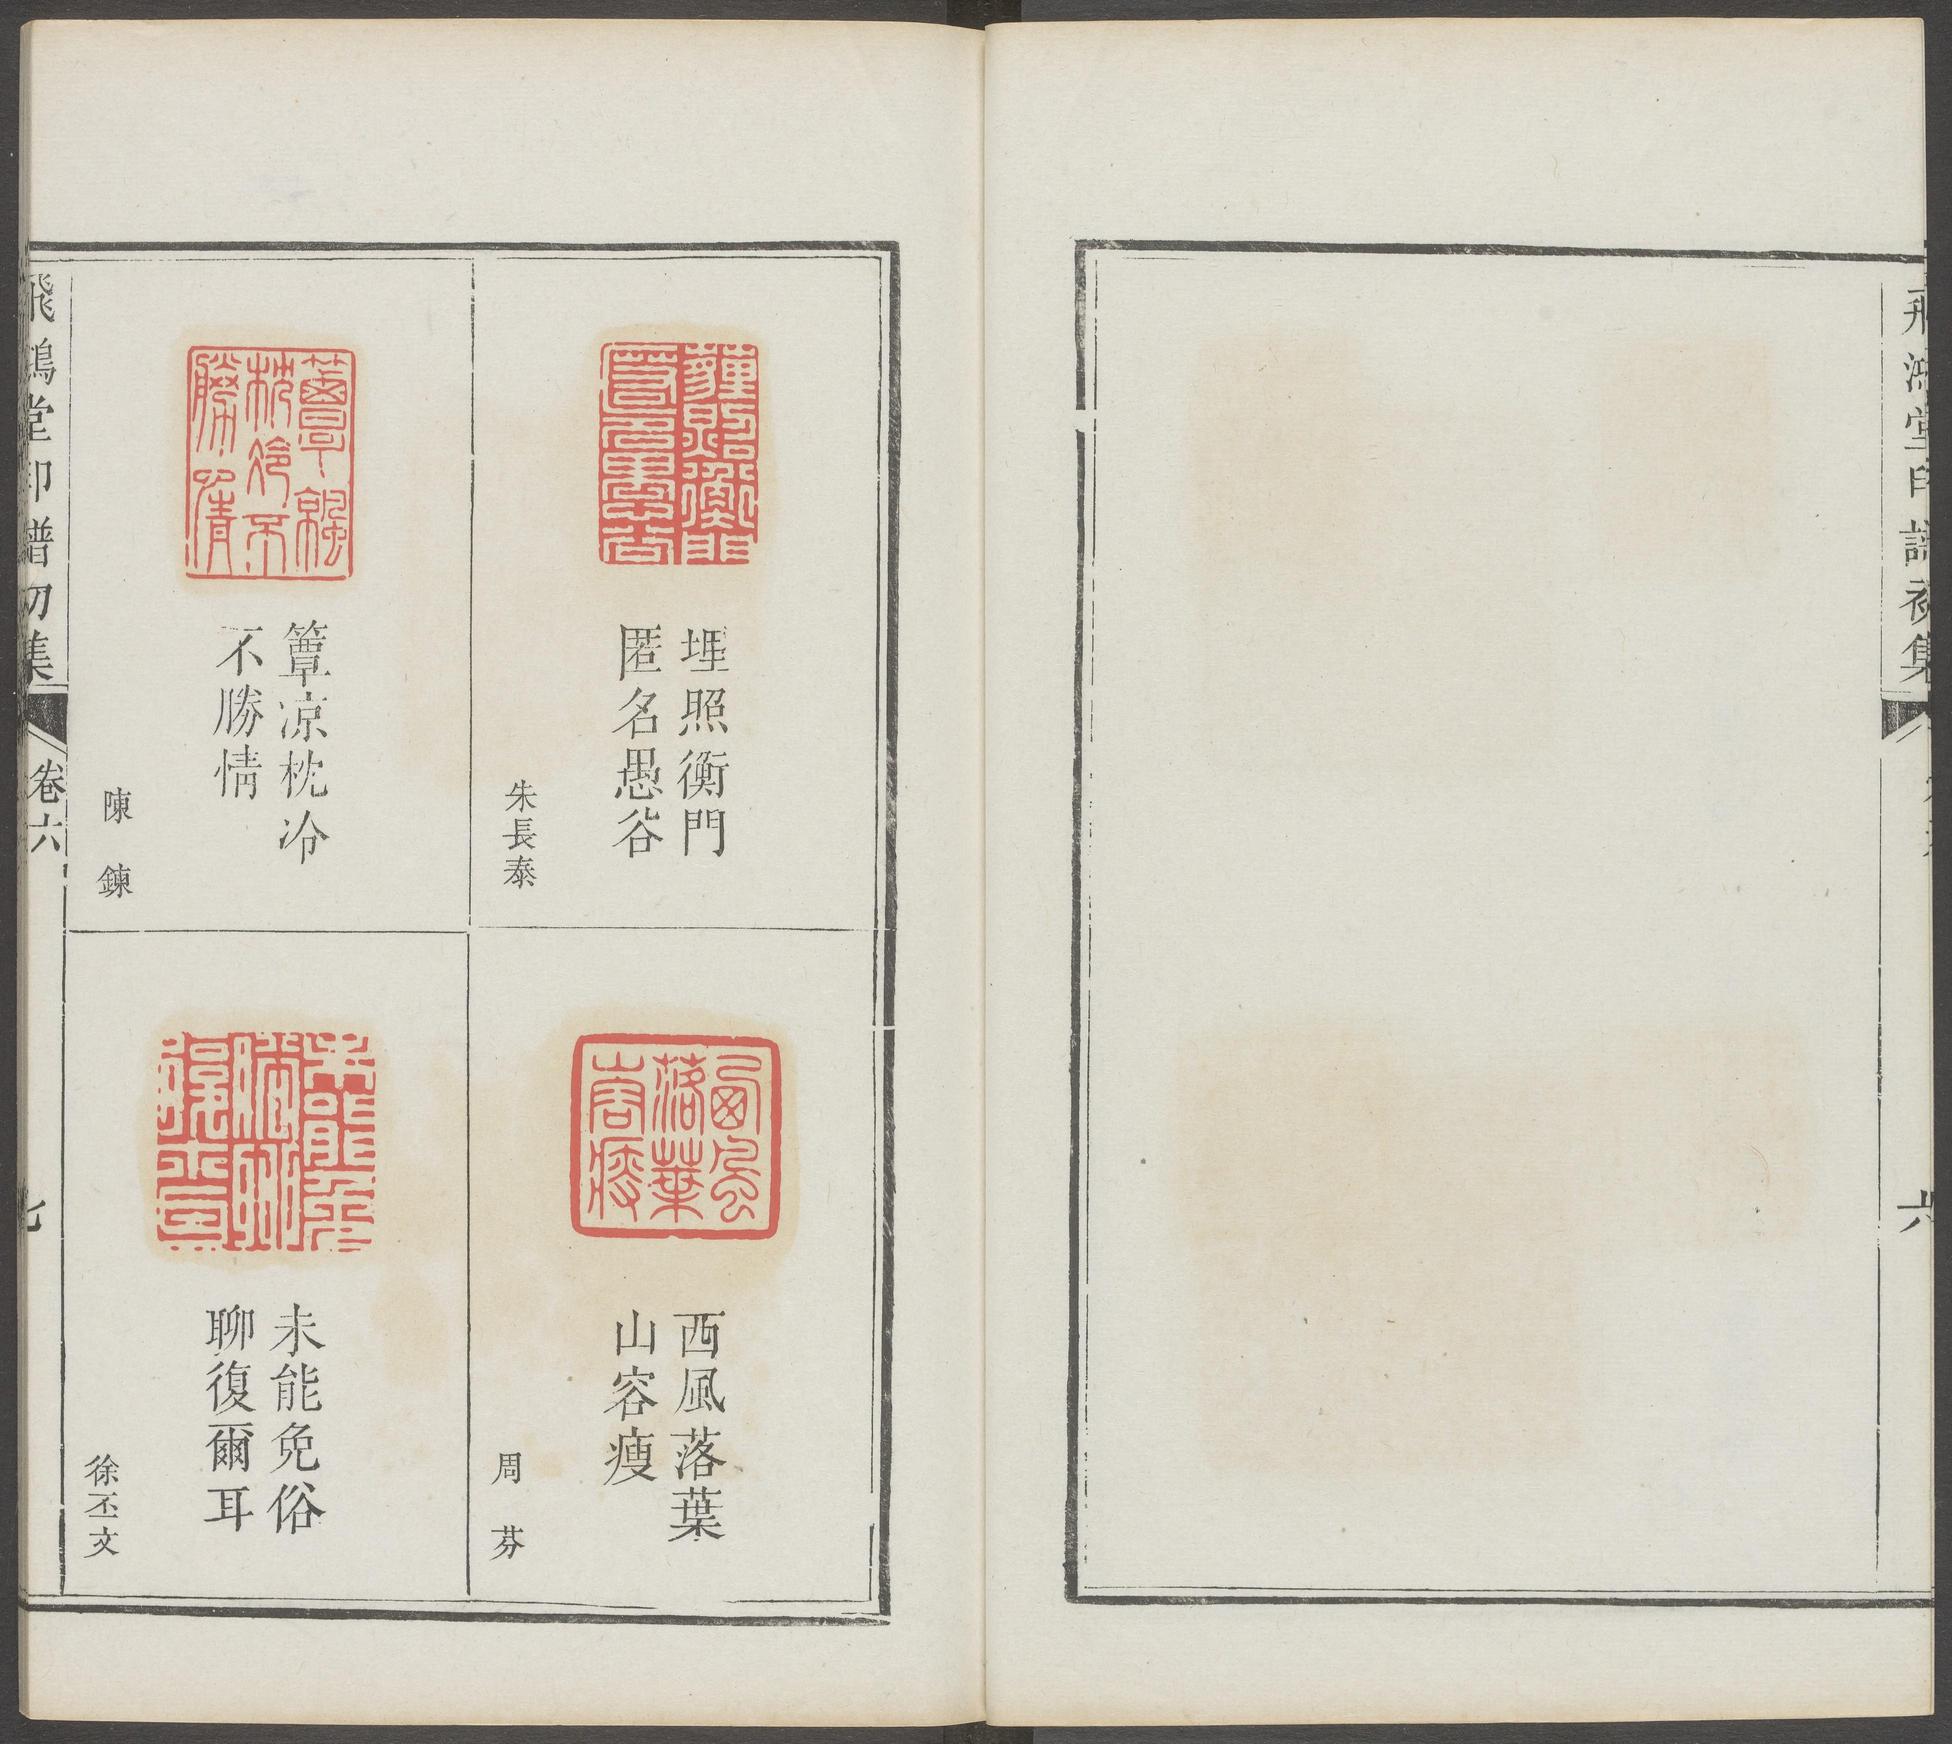 飛鴻堂印譜初集
六
埋照衡門
匿名愚谷
朱長泰
西風落葉
山容瘦
周芬
簟凉枕冷
不勝情
陳鍊
未能免俗
聊復爾耳
徐丕文
飛鴻堂印譜初集
卷六
七